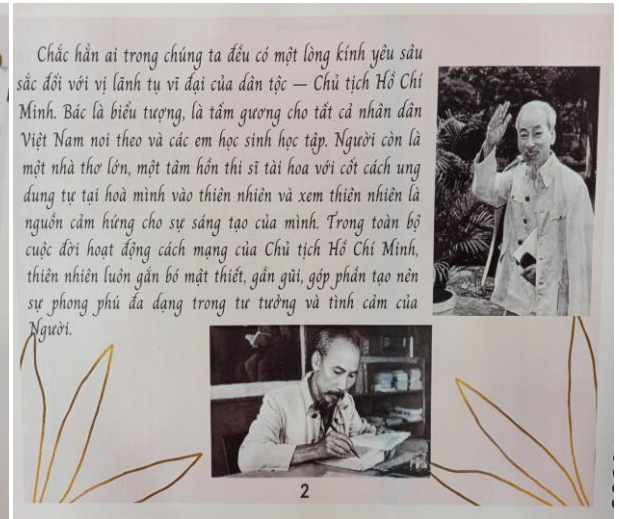 Chắc hẳn ai trong chúng ta đều có một lòng kính yêu sâu
sắc đối với vị lãnh tụ vĩ đại của dân tộc — Chủ tịch Hồ Chí
Minh. Bác là biểu tượng, là tấm gương cho tất cả nhân dân
Việt Nam noi theo và các em học sinh học tập. Người còn là
một nhà thơ lớn, một tâm hồn thi sĩ tài hoa với cốt cách ung
dung tự tại hoà mình vào thiên nhiên và xem thiên nhiên là
nguồn cảm hứng cho sự sáng tạo của mình. Trong toàn bộ
cuộc đời hoạt động cách mạng của Chủ tịch Hồ Chí Minh,
thiên nhiên luôn gắn bó mật thiết, gần gũi, góp phần tạo nên
sự phong phú đa dạng trong tư tưởng và tình cảm của
Người.
2